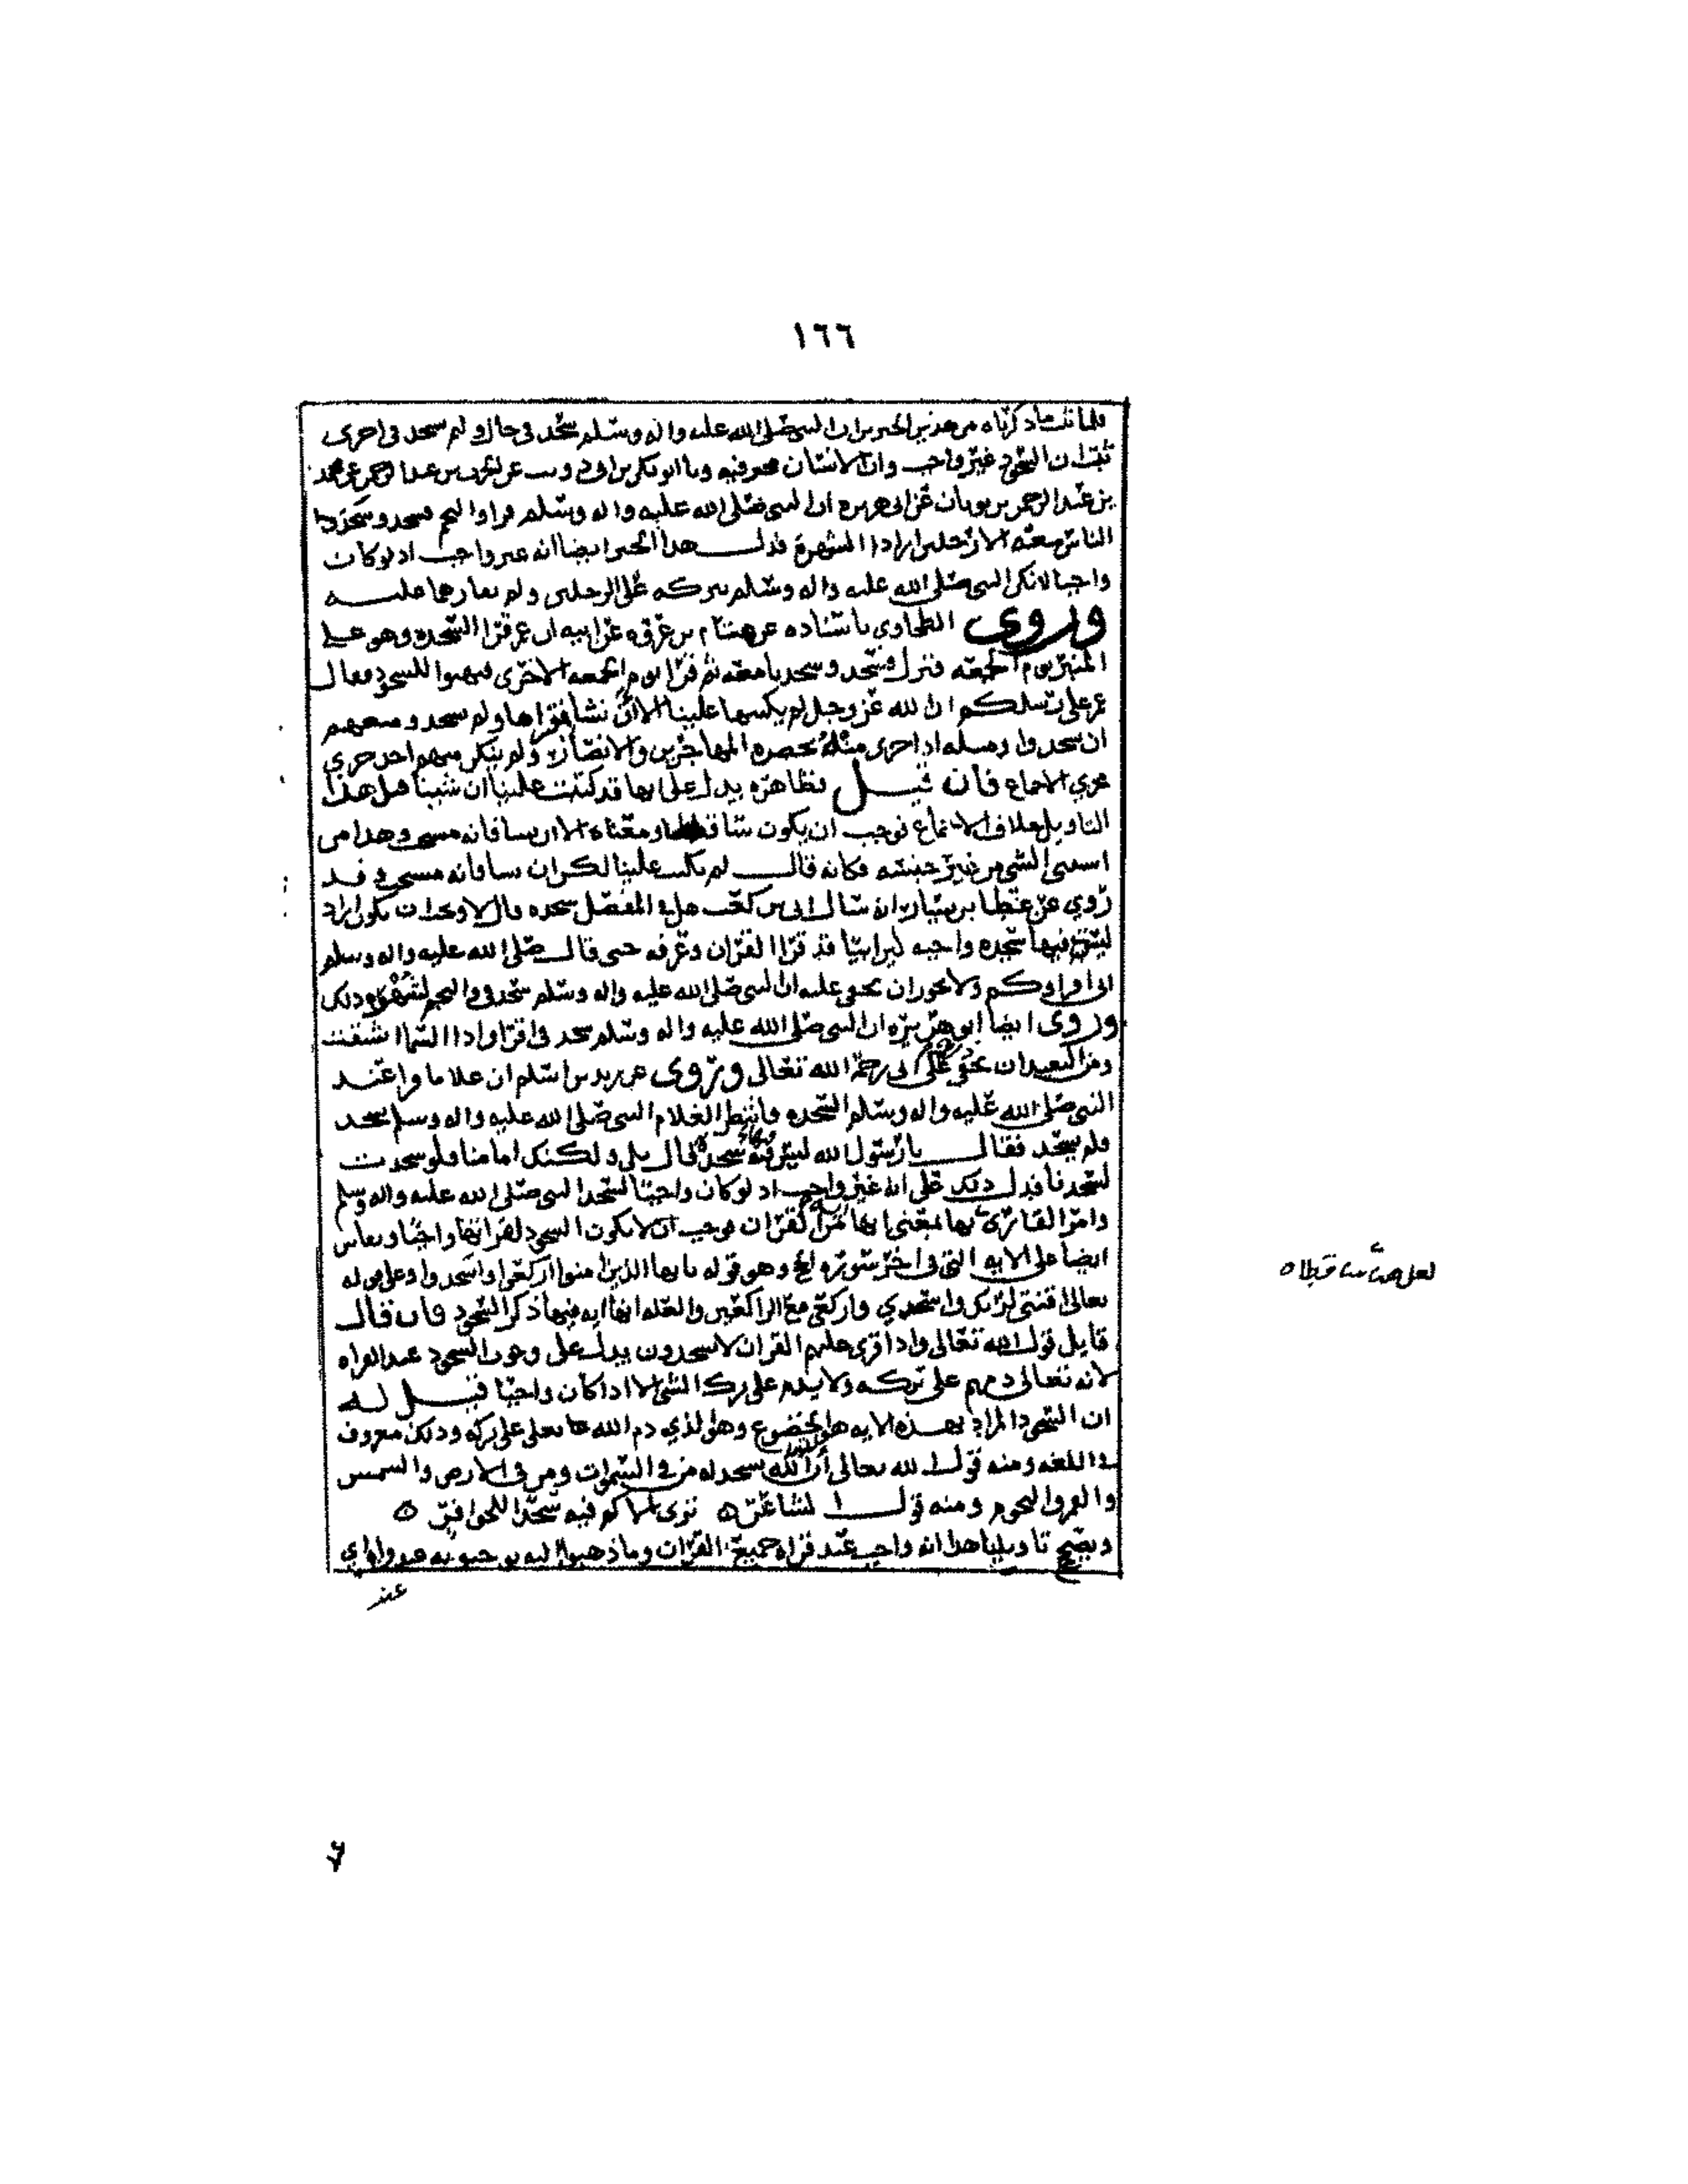 ١٦٦
فلما ثبت ما ذكرناه من هذين الخبرين ان النبي صلى الله عليه واله وسلم سجد في حال ولم يسجد في اخرى
ثبت ان السجود غير واجب وان الانسان مخير فيه
بن عبد الرحمن بن ثوبان عن ابي هريره ان النبي صلى الله عليه واله وسلم قرا والنجم فسجد وسجد
الناس معه الا رجلين ارادا الشهرة فدل هذا الخبر ايضا انه غير واجب اذ لو كان
واجبا لانكر النبي صلى الله عليه واله وسلم تركه على الرجلين ولم يقارهما عليه
وروى الطحاوي باسناده عن هشام بن عروه عن ابيه ان عمر قرا السجده وهو على
المنبر يوم الجمعه فنزل فسجد وسجدنا معه ثم قرا يوم الجمعه الاخرى فتهيوا للسجود فقال
عمر على رسلكم ان الله عز وجل لم يكتبها علينا الا ان نشا فقراها ولم يسجد ومنعهم
ان يسجدوا ومثله اذا جرى مثله بحضره المهاجرين والانصار ولم ينكر منهم احد جرى
مجرى الاجماع فان قيل فظاهره يدل على انها قد كتبت علينا ان شينا قيل هذا
التاويل خلاف الاجماع فوجب ان يكون ساقطا ومعناه الا ان يشا فانه مستحب وهذا من
استثنى الشي من غير جنسه فكانه قال لم يكتب علينا لكن ان يشا فانه مستحب وقد
روي عن عطا بن يسار انه سال ابي بن كعب هل في المفصل سجده قال لا ويجوز ان يكون اراد
ليس فيها سجده واجبه لان ابيا قد قرا القران وعرفه حتى قال صلى الله عليه واله وسلم
ابي اقراوكم ولا يجوز ان يخفى عليه ان النبي صلى الله عليه واله وسلم سجد في والنجم لشهرة ذلك
وروى ايضا ابو هريره ان النبي صلى الله عليه واله وسلم سجد في اقرا واذا السما انشقت
ومن البعيد ان يخفى ذلك على ابي رحمه الله تعالى وروى عن زيد بن اسلم ان غلاما قرا عند
النبي صلى الله عليه واله وسلم السجده فانتظر الغلام النبي صلى الله عليه واله وسلم يسجد
فلم يسجد فقال يا رسول الله ليس فيها سجدة قال بلى ولكنك امامنا فلو سجدت
لسجدنا فدل ذلك على انه غير واجب اذ لو كان واجبا لسجد النبي صلى الله عليه واله وسلم
وامر القارئ بها لمعنى انها من القران فوجب ان لا يكون السجود لقراتها واجبا وتقاس
ايضا على الايه التي في اخر سوره الحج وهو قوله يا ايها الذين امنوا اركعوا واسجدوا وعلى قوله
تعالى اقنتي لربك واسجدي واركعي مع الراكعين والعله انها ايه فيها ذكر السجود فان قال
قايل قول الله تعالى واذا قرئ عليهم القران لا يسجدون يدل على وجوب السجود عند القراه
لانه تعالى ذمهم على تركه ولا يذم على ترك الشي الا اذا كان واجبا قيل له
ان السجود المراد بهذه الايه هو الخضوع وهو الذي ذم الله تعالى على تركه وذلك معروف
في اللغه ومنه قول الله تعالى الم تر ان الله يسجد له من في السموات ومن في الارض والشمس
والقمر والنجوم ومنه قول الشاعر ه ترى الاكم فيه سجدا للحوافر ه
ويصح تاويلنا هذا انه واجب عند قراه جميع القران وما ذهبوا اليه يوجبونه عند
عند
لعل هنا ساقطا ه